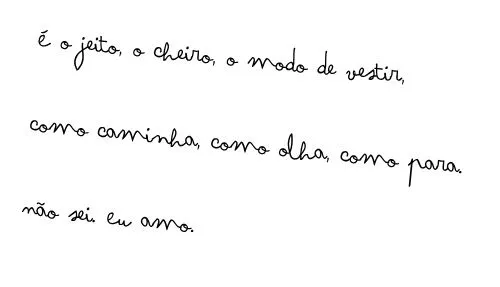 é o jeito, o cheiro, o modo de vestir,
como caminha, como olha, como para.
não sei. eu amo.